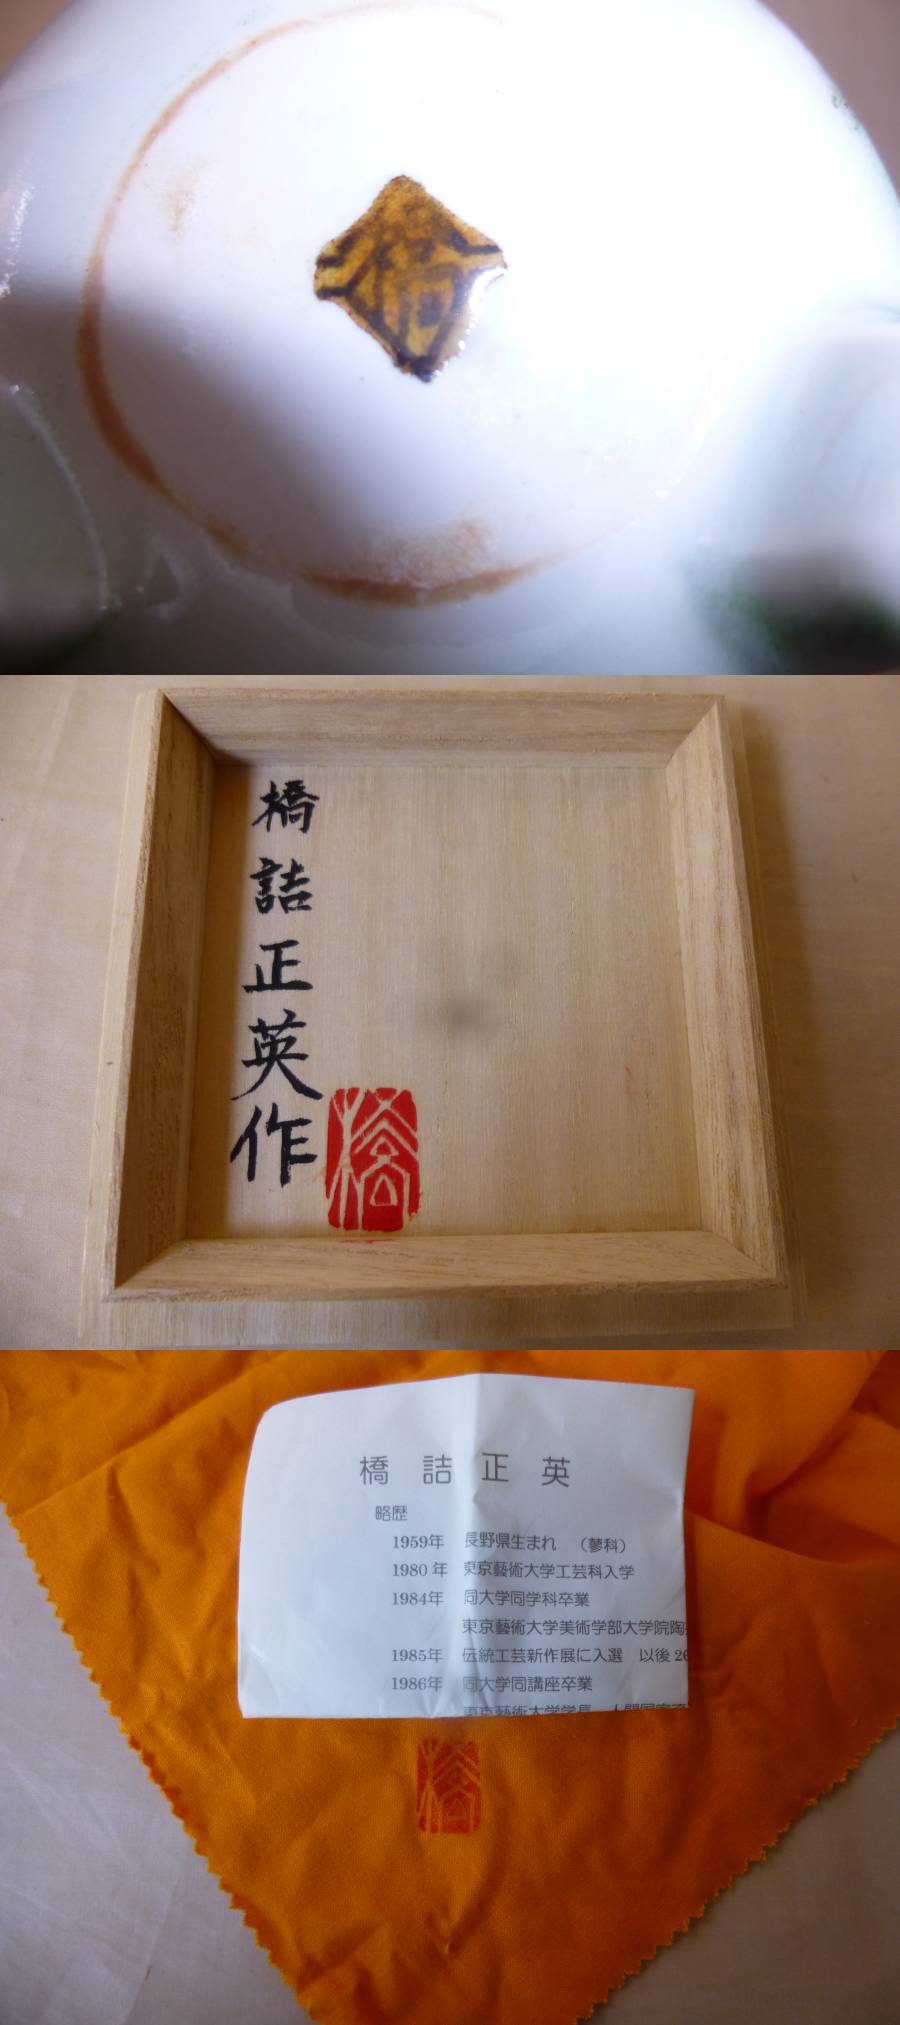 橋詰正英作
橋
橋詰正英
略歴
1959年 長野県生まれ (蓼科)
1980年 東京藝術大学工芸科入学
1984年 同大学同学科卒業
東京藝術大学美術学部大学院陶
1985年 伝統工芸新作展に入選 以後 2
1986年 同大学同講座卒業
東京藝術大学学長 人間国宝
橋